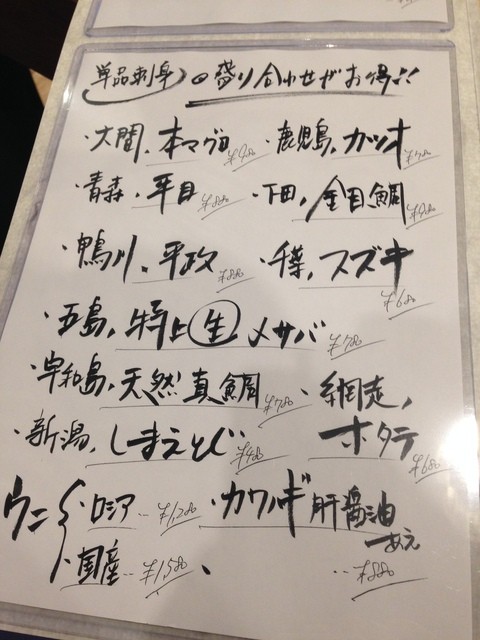 単品刺身 の盛り合わせがお得!!
・大間、本マグロ ¥980 ・鹿児島、カツオ ¥780
・青森、平目 ¥880 ・下田、金目鯛 ¥980
・鴨川、平政 ¥880 ・千葉、スズキ ¥680
・五島、特上生〆サバ ¥780
・宇和島、天然真鯛 ¥780 ・網走、ホタテ ¥680
・新潟、しまえび ¥980
ウニ ・ロシア… ¥1,280 ・カワハギ肝醤油あえ ‥¥880
・国産… ¥1,580